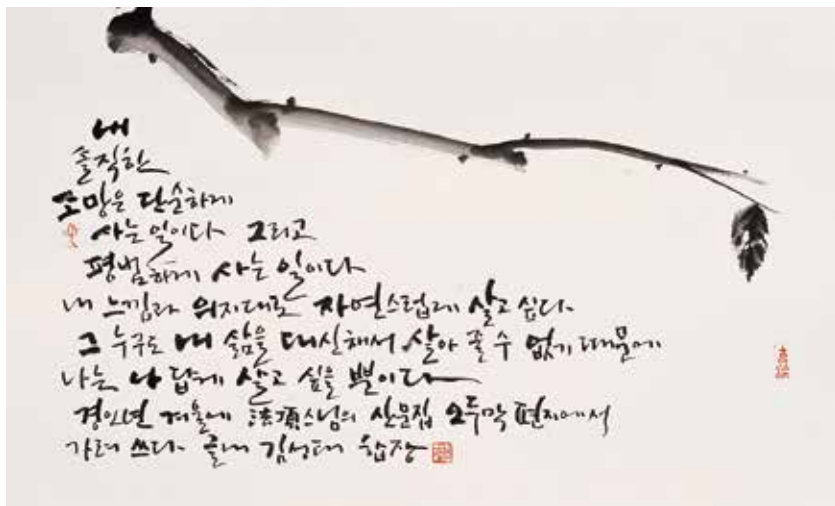 내
솔직한
소망은 단순하게
사는 일이다 그리고
평범하게 사는 일이다
내 느낌과 의지대로 자연스럽게 살고 싶다.
그 누구도 내 삶을 대신해서 살아 줄 수 없기 때문에
나는 나 답게 살고 싶을 뿐이다
경인년 겨울에 法頂스님의 산문집 오두막 편지에서
가려 쓰다 김성태 합장